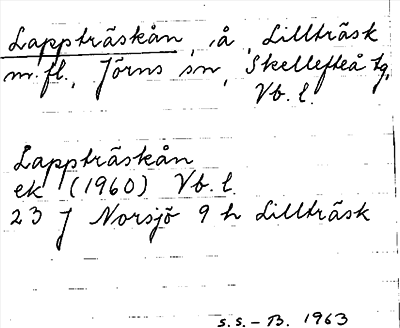 Lappträskån, å, Lillträsk
m.fl., Jörns sn, Skellefteå tg,
Vb. l.
Lappträskån
ek (1960) Vb. l.
23 J Norsjö 9 h Lillträsk
S.S. – B. 1963